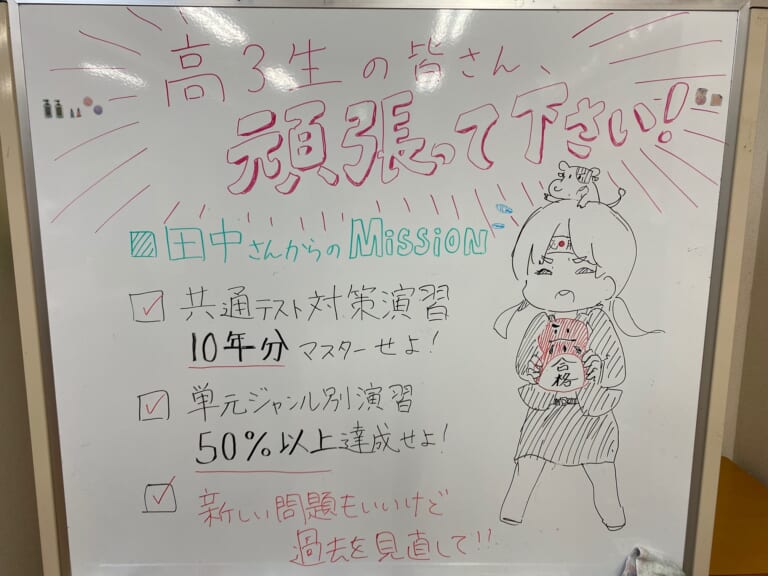 高3生の皆さん、
頑張って下さい!
田中さんからのMISSION
共通テスト対策演習
10年分マスターせよ!
単元ジャンル別演習
50%以上達成せよ!
新しい問題もいいけど
過去を見直して!!
合格